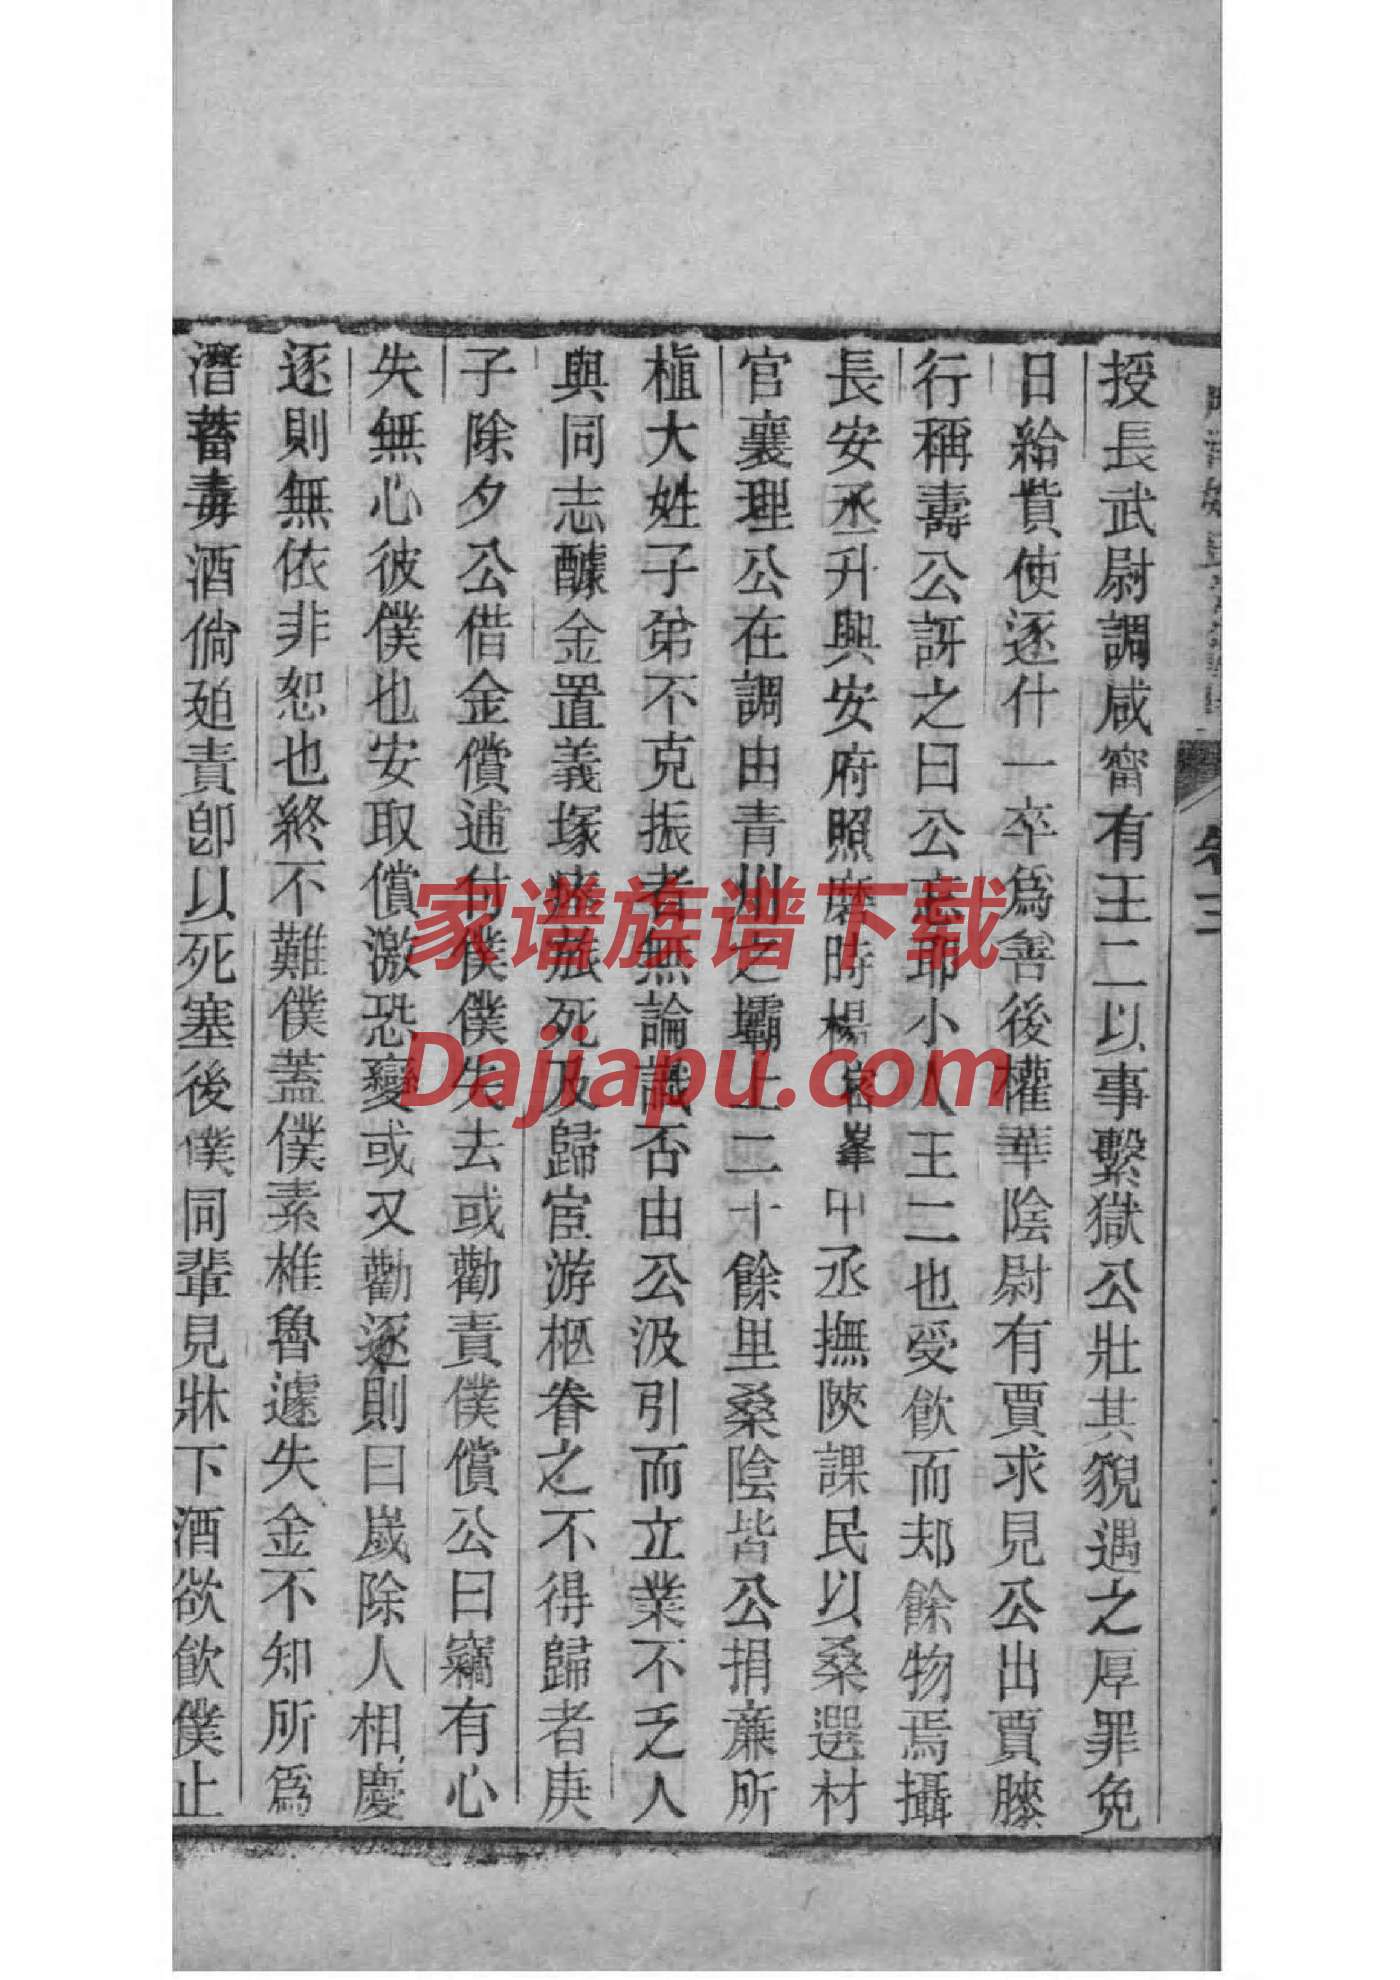 授長武尉調咸寗有王二以事繫獄公壯其貌遇之厚罪免
日給貲使逐什一卒爲善後權華陰尉有賈求見公出賈膝
行稱壽公訝之曰公忘耶小人王二也受飮而却餘物焉攝
長安丞升興安府照磨時楊峯中丞撫陝課民以桑選材
官襄理公在調由青州之壩上二十餘里桑陰皆公捐亷所
植大姓子弟不克振者無論識否由公汲引而立業不乏人
與同志醵金置義塚瘞旅死及歸宦游柩眷之不得歸者庚
子除夕公借金償逋付僕僕失去或勸責僕償公曰竊有心
失無心彼僕也安取償激恐變或又勸逐則曰歲除人相慶
逐則無依非恕也終不難僕蓋僕素椎魯遽失金不知所爲
潛蓄毒酒倘廹責卽以死塞後僕同輩見牀下酒欲飮僕止
卷三
家谱族谱下载
Dajiapu.com